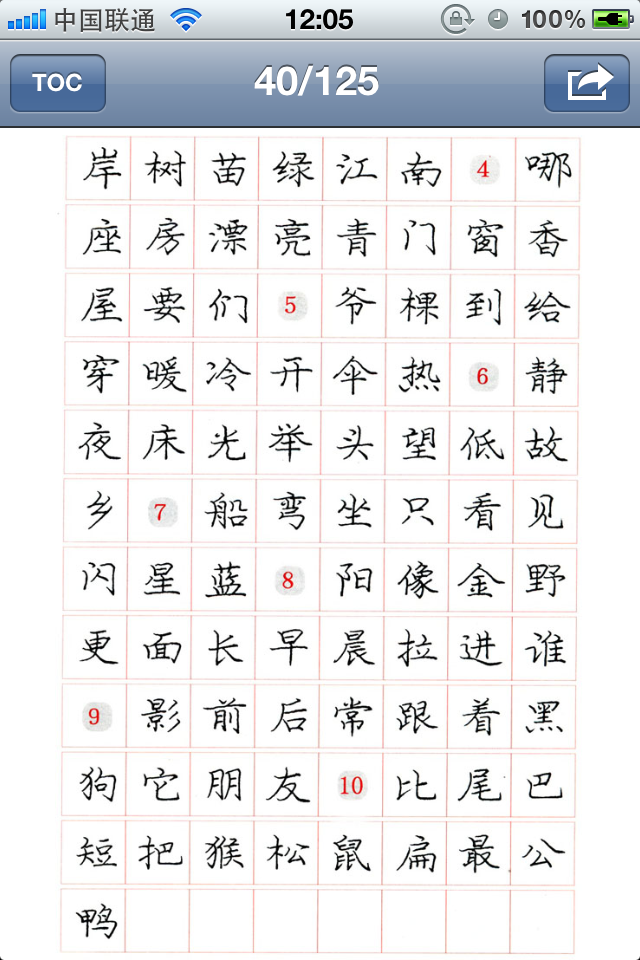 中国联通 12:05 100%
TOC 40/125
岸树苗绿江南4哪
座房漂亮青门窗香
屋要们5爷棵到给
穿暖冷开伞热6静
夜床光举头望低故
乡7船弯坐只看见
闪星蓝8阳像金野
更面长早晨拉进谁
9影前后常跟着黑
狗它朋友10比尾巴
短把猴松鼠扁最公
鸭